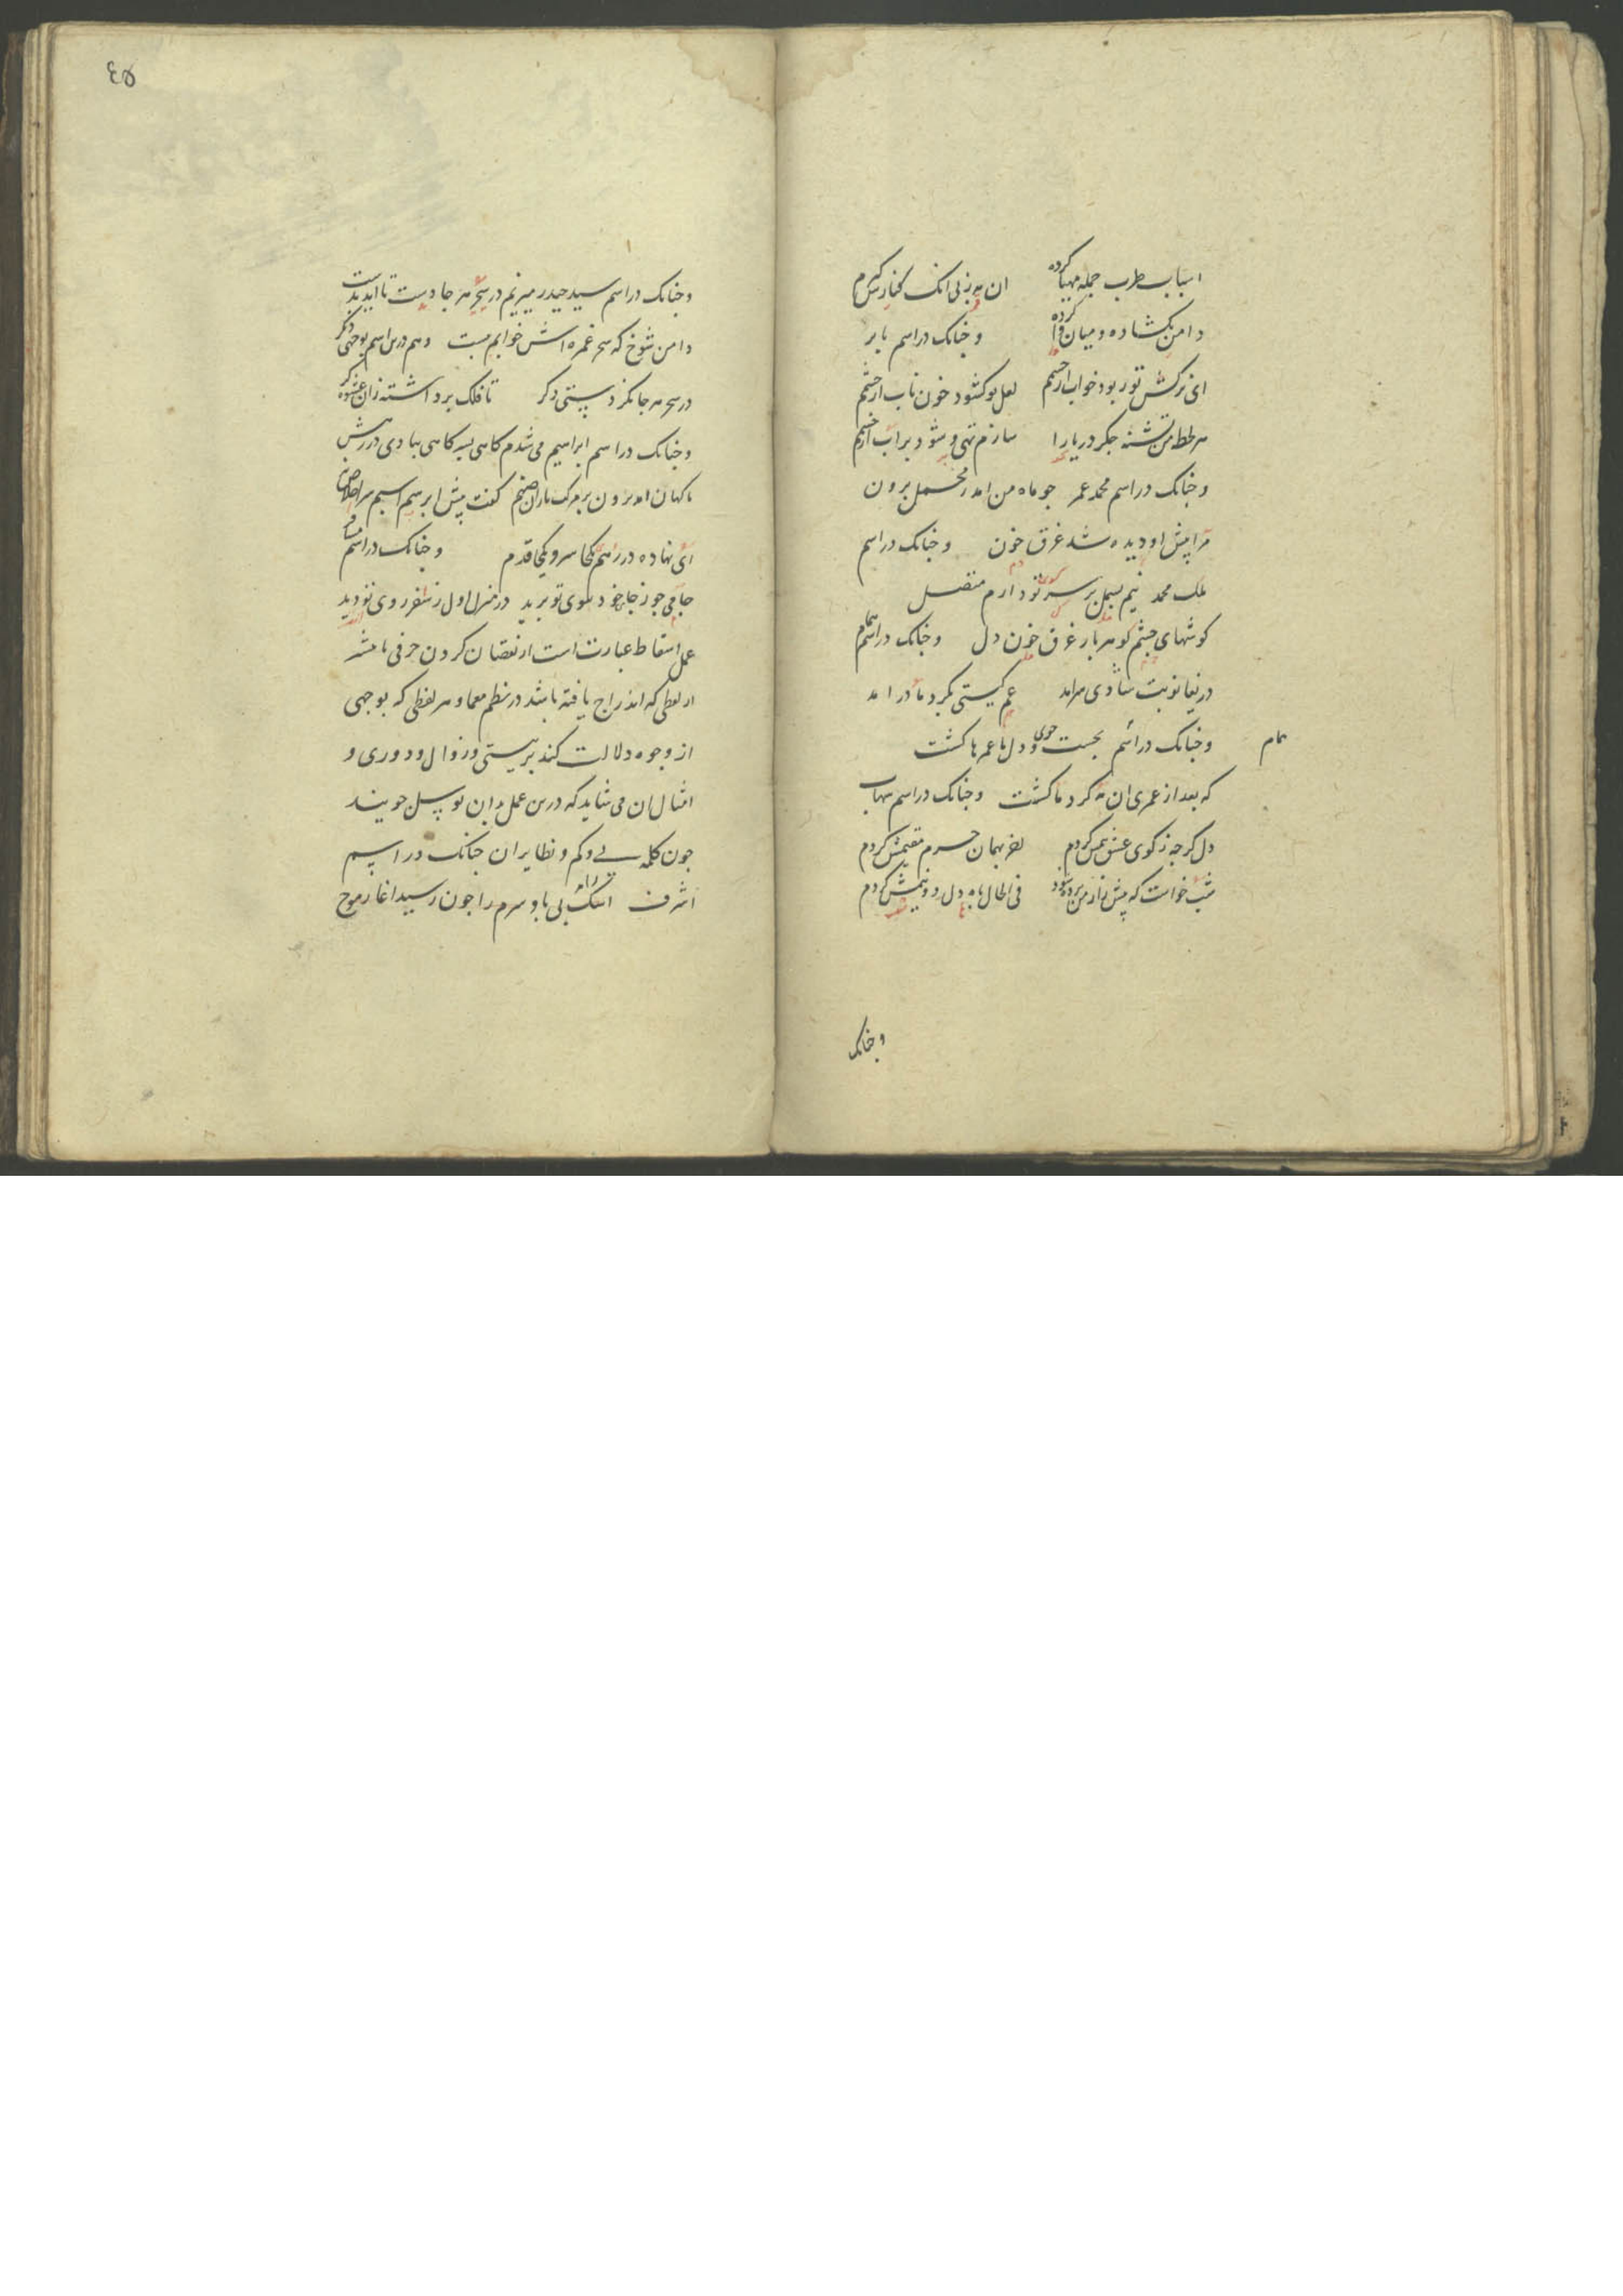 اسباب طرب جمله مهیا کرده ان مه زپی انک کنارش کیرم
دامن بکشاده و میان وا کرده وجنانک در اسم بابر
ای نرکس تو ربوده خواب از چشم لعل تو کشود خون ناب از چشم
هر لحظه من تشنه جکر دریا را سازم تهی و شود پر اب از چشم
وجنانک در اسم محمد عمر جو ماه من امد ز محمل برون
مرا پیش او دیده شد غرق خون وجنانک در اسم
ملک محمد نیم بسمل بر سر کوی تو دارم متصل
کوشهای چشم کوهر بار غرق خون دل وجنانک در اسم تمام
دریغا نوبت شادی سرامد غم کیستی بکرد ما در امد
وجنانک در اسم همام بجست وجوی دل ما عمرها کشت
که بعد از عمری ان مه کرد ما کشت وجنانک در اسم شهاب
دل کرجه ز کوی عشق بیمش کردم لطف بهمان حرم مقیمش کردم
شب خواست که پیش نازمن برده شود فی الحال باه دل دو نیمش کردم
وجنانک
٤٥
وجنانک در اسم سید حیدر میریم در سحر هر جا دست تا اید بدست
دامن شوخ که سحر غمزه اش خوابم ببست وهم درین اسم بوجهی دکر
در سحر هر جا نکر دستی دکر تا فلک برداشته زان عشوه کر
وجنانک در اسم ابراهیم می شدم کاهی بسر کاهی ببادی در رهش
ناکهان امد برون بر مرکب نازان صنم کفت پیش ابرشم اسیم سر اخلاص
ای نهاده در رهم یکجا سر و یکجا قدم وجنانک در اسم
جامی جو ز جا خود سوی تو برید در منزل اول ز سفر روی تو دید
عمل اسقاط عبارت است از نقصان کردن حرفی یا بیشتر
از لفظی که اندراج یافته باشد در نظم معما و هر لفظی که بوجهی
از وجوه دلالت کند بر نیستی و زوال و دوری و
امثال ان می شاید که درین عمل بدان توسل جویند
جون کلمه بی و کم و نظایر ان جنانک در اسم
اشرف اشک بی پا و سرم را جون رسید اغاز موج